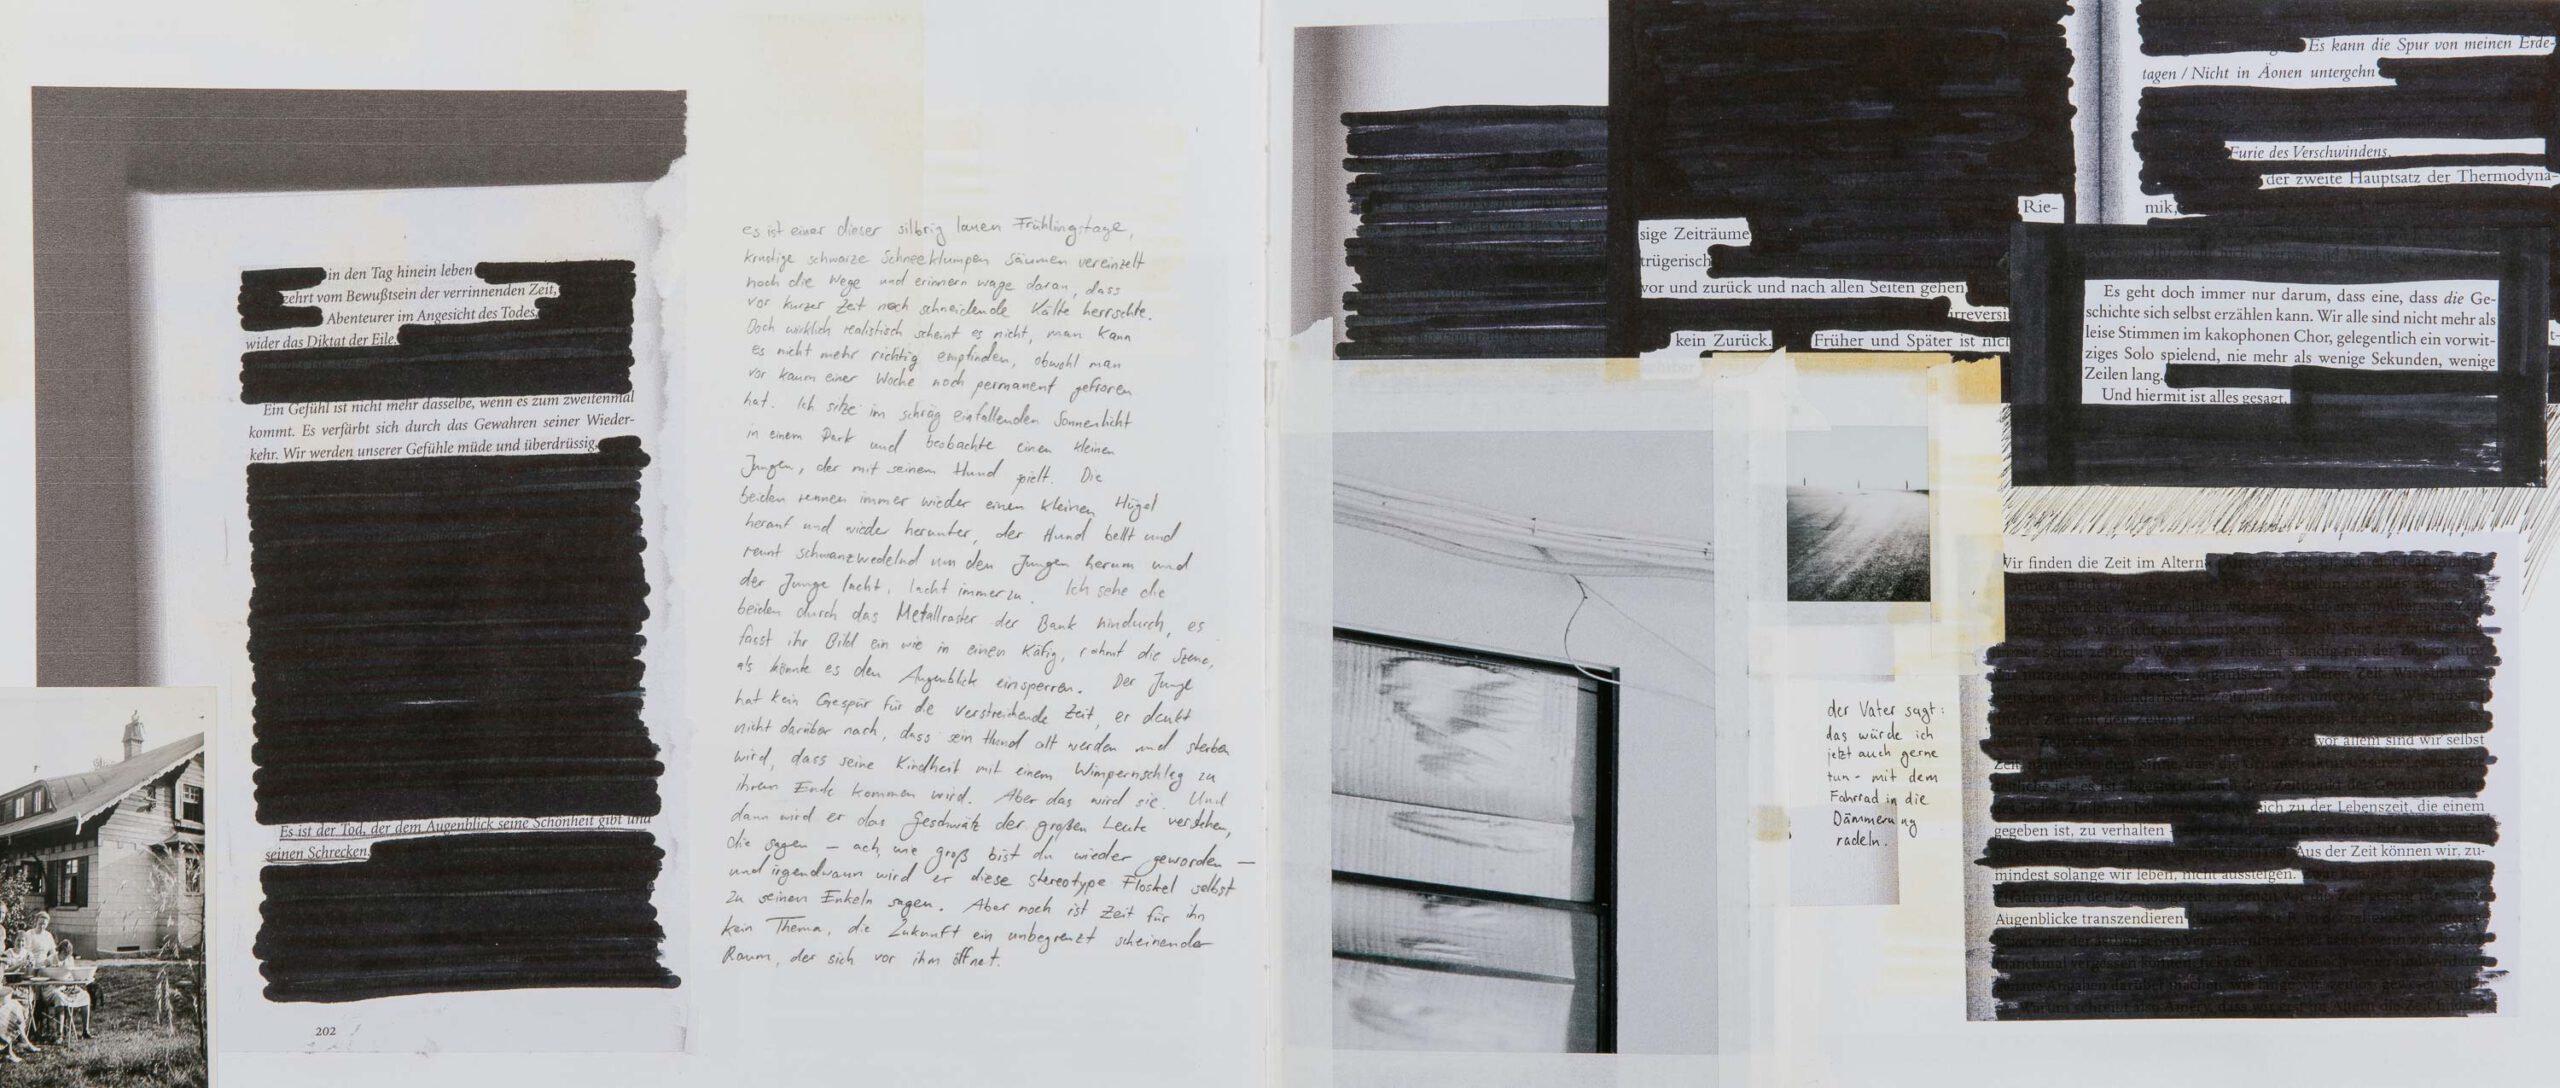 in den Tag hinein leben
zehrt vom Bewußtsein der verrinnenden Zeit,
Abenteurer im Angesicht des Todes,
wider das Diktat der Eile.
Ein Gefühl ist nicht mehr dasselbe, wenn es zum zweitenmal
kommt. Es verfärbt sich durch das Gewahren seiner Wieder-
kehr. Wir werden unserer Gefühle müde und überdrüssig,
Es ist der Tod, der dem Augenblick seine Schönheit gibt und
seinen Schrecken.
202
es ist einer dieser silbrig lauen Frühlingstage,
krustige schwarze Schneeklumpen säumen vereinzelt
noch die Wege und erinnern vage daran, dass
vor kurzer Zeit noch schneidende Kälte herrschte.
Doch wirklich realistisch scheint es nicht, man kann
es nicht mehr richtig empfinden, obwohl man
vor kaum einer Woche noch permanent gefroren
hat. Ich sitze im schräg einfallenden Sonnenlicht
in einem Park und beobachte einen kleinen
Jungen, der mit seinem Hund spielt. Die
beiden rennen immer wieder einen kleinen Hügel
herauf und wieder herunter, der Hund bellt und
rennt schwanzwedelnd um den Jungen herum und
der Junge lacht, lacht immerzu. Ich sehe die
beiden durch das Metallraster der Bank hindurch, es
fasst ihr Bild ein wie in einen Käfig, rahmt die Szene,
als könnte es den Augenblick einsperren. Der Junge
hat kein Gespür für die verstreichende Zeit, er denkt
nicht darüber nach, dass sein Hund alt werden und sterben
wird, dass seine Kindheit mit einem Wimpernschlag zu
ihrem Ende kommen wird. Aber das wird sie. Und
dann wird er das Geschwätz der großen Leute verstehen,
die sagen – ach, wie groß bist du wieder geworden –
und irgendwann wird er diese stereotype Floskel selbst
zu seinen Enkeln sagen. Aber noch ist Zeit für ihn
kein Thema, die Zukunft ein unbegrenzt scheinender
Raum, der sich vor ihm öffnet.
Rie-
sige Zeiträume
trügerisch
vor und zurück und nach allen Seiten gehen
irreversi
kein Zurück. Früher und Später ist nic
Es kann die Spur von meinen Erde-
tagen / Nicht in Äonen untergehn
Furie des Verschwindens,
der zweite Hauptsatz der Thermodyna-
mik,
Es geht doch immer nur darum, dass eine, dass die Ge-
schichte sich selbst erzählen kann. Wir alle sind nicht mehr als
leise Stimmen im kakophonen Chor, gelegentlich ein vorwit-
ziges Solo spielend, nie mehr als wenige Sekunden, wenige
Zeilen lang.
Und hiermit ist alles gesagt.
der Vater sagt:
das würde ich
jetzt auch gerne
tun - mit dem
Fahrrad in die
Dämmerung
radeln.
Wir finden die Zeit im Altern
vor allem sind wir selbst
Zeit
sich zu der Lebenszeit, die einem
gegeben ist, zu verhalten
Aus der Zeit können wir, zu-
mindest solange wir leben, nicht aussteigen.
Augenblicke transzendieren